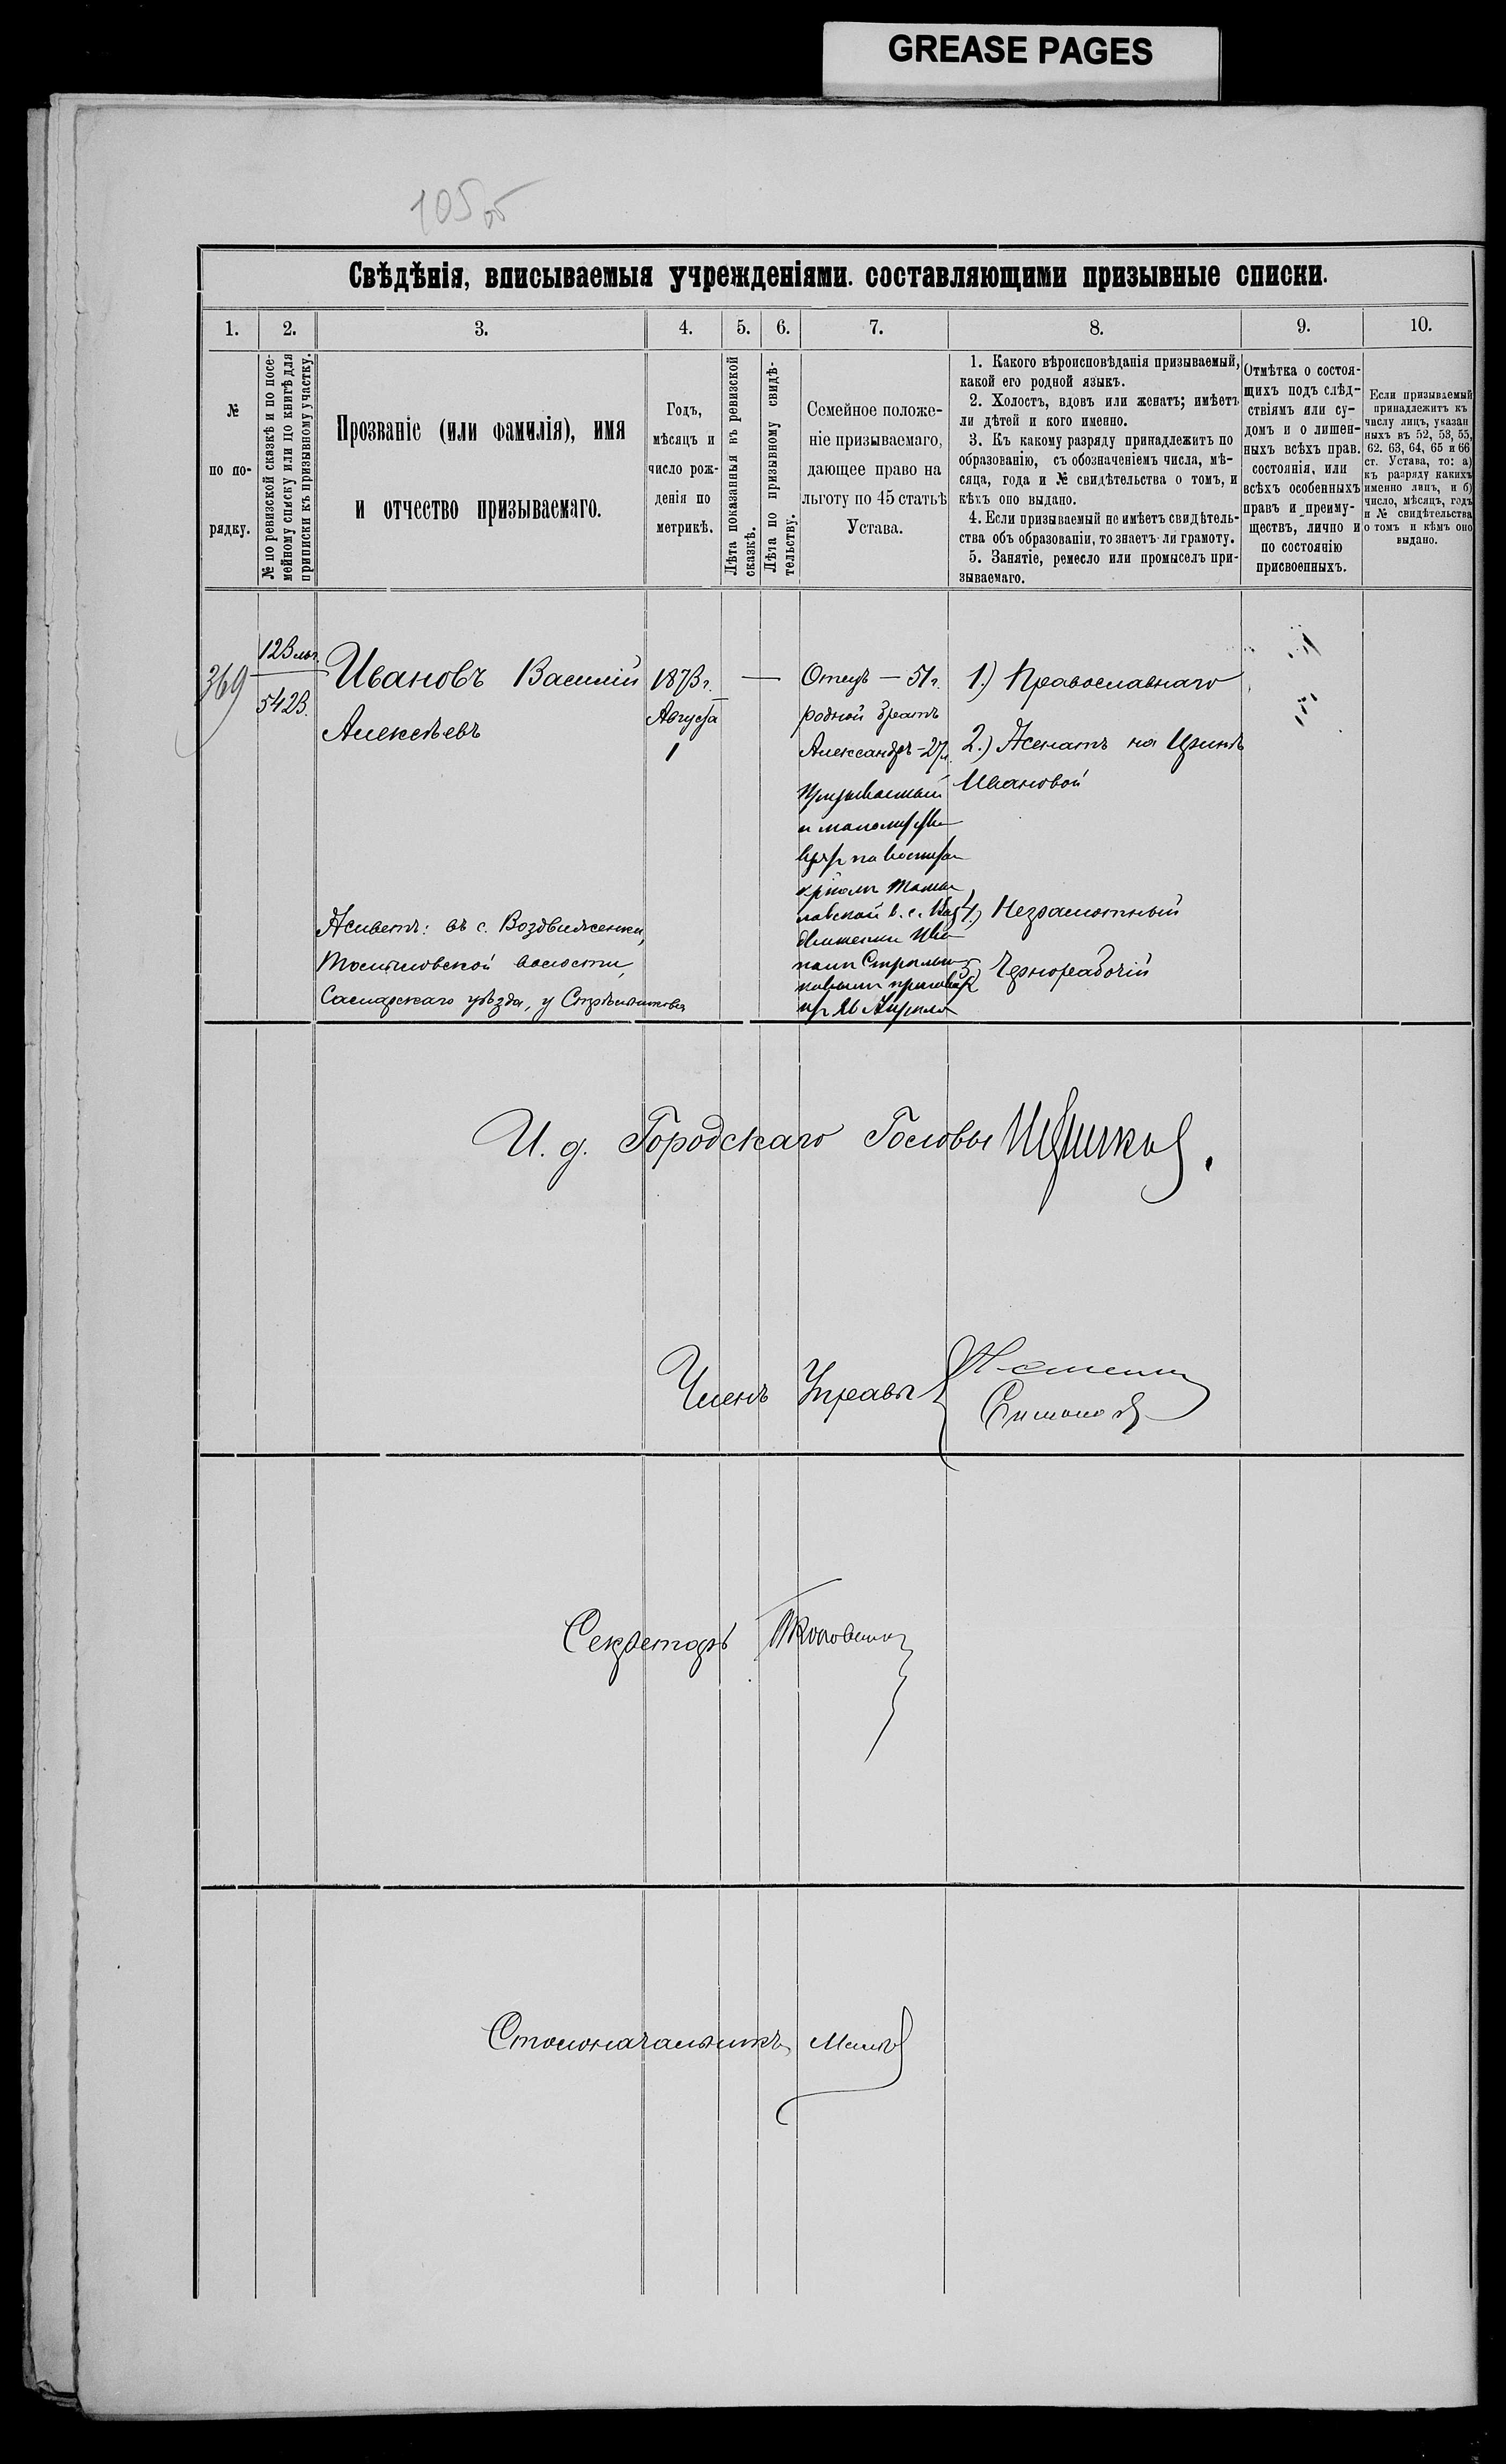 GREASE PAGES
105 об
Свѣдѣнія, вписываемыя учрежденіями. составляющими призывные списки.
1. 2. 3. 4. 5. 6. 7. 8. 9. 10.
№
по по-
рядку.
№ по ревизской сказкѣ и по посе-
мейному списку или по книгѣ для
приписки къ призывному участку.
Прозваніе (или фамилія), имя
и отчество призываемаго.
Годъ,
мѣсяцъ и
число рож-
денія по
метрикѣ.
Лѣта показанныя къ ревизской
сказкѣ.
Лѣта по призывному свидѣ-
тельству.
Семейное положе-
ніе призываемаго,
дающее право на
льготу по 45 статьѣ
Устава.
1. Какого вѣроисповѣданія призываемый,
какой его родной языкъ.
2. Холостъ, вдовъ или женатъ; имѣетъ
ли дѣтей и кого именно.
3. Къ какому разряду принадлежитъ по
образованію, съ обозначеніемъ числа, мѣ-
сяца, года и № свидѣтельства о томъ, и
кѣмъ оно выдано.
4. Если призываемый не имѣетъ свидѣтель-
ства объ образованіи, то знаетъ ли грамоту.
5. Занятіе, ремесло или промыселъ при-
зываемаго.
Отмѣтка о состоя-
щихъ подъ слѣд-
ствіямъ или су-
домъ и о лишен-
ныхъ всѣхъ прав.
состоянія, или
всѣхъ особенныхъ
правъ и преиму-
ществъ, лично и
по состоянію
присвоенныхъ.
Если призываемый
принадлежитъ къ
числу лицъ, указан
ныхъ въ 52, 53, 55,
62. 63, 64, 65 и 66
ст. Устава, то: а)
къ разряду какихъ
именно лицъ, и б)
число, мѣсяцъ, годъ
и № свидѣтельства
о томъ и кѣмъ оно
выдано.
369
5423.
Ивановъ Василій
Алексѣевъ
Живетъ: въ с. Воздвиженки,
волости,
Самарскаго уѣзда, у Стрѣльникова
1873 г.
Августа
1
—
Отецъ — 51 г.
родной братъ
Александръ - 27 л.
Призываемый
1.) Православнаго
2.) Женатъ на
Ивановой
4.) Неграмотный
5.) Чернорабочій
И. д. Городскаго Головы
Членъ Управы
Секретарь
Столоначальникъ